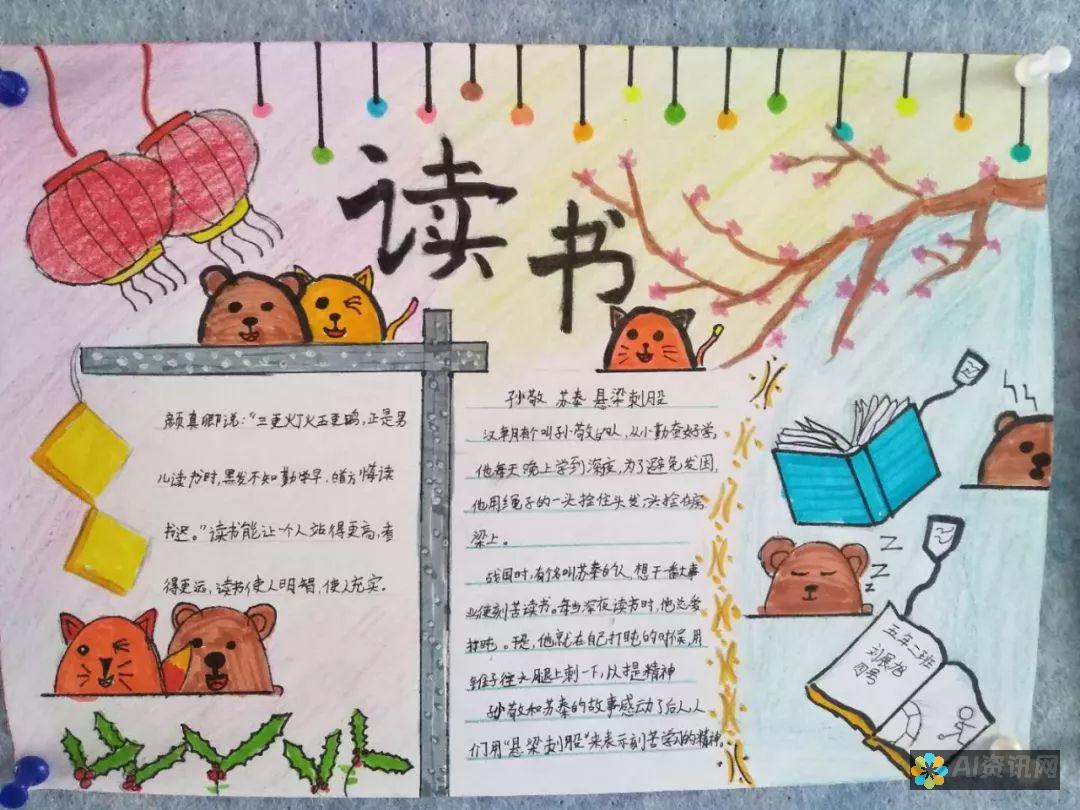 读书
颜真卿说:“三更灯火五更鸡,正是男
儿读书时,黑发不知勤学早,白首方悔读
书迟。”读书能让一个人站得更高,看
得更远,读书使人明智,使人充实。
孙敬 苏秦 悬梁刺股
汉朝有个叫孙敬的人,从小勤奋好学,
他每天晚上学到深夜,为了避免发困,
他用绳子的一头拴住头发,一头拴在房
梁上。
战国时,有个名叫苏秦的人,想干一番大事
业便刻苦读书。每当深夜读书时,他总爱
打盹。于是,他就在自己打盹的时候,用
锥子往大腿上刺一下,以提精神
孙敬和苏秦的故事感动了后人,人
们用“悬梁刺股”来表示刻苦学习的精神。
Z
Z
Z
五年二班
刘展旭
四号
AI资讯网